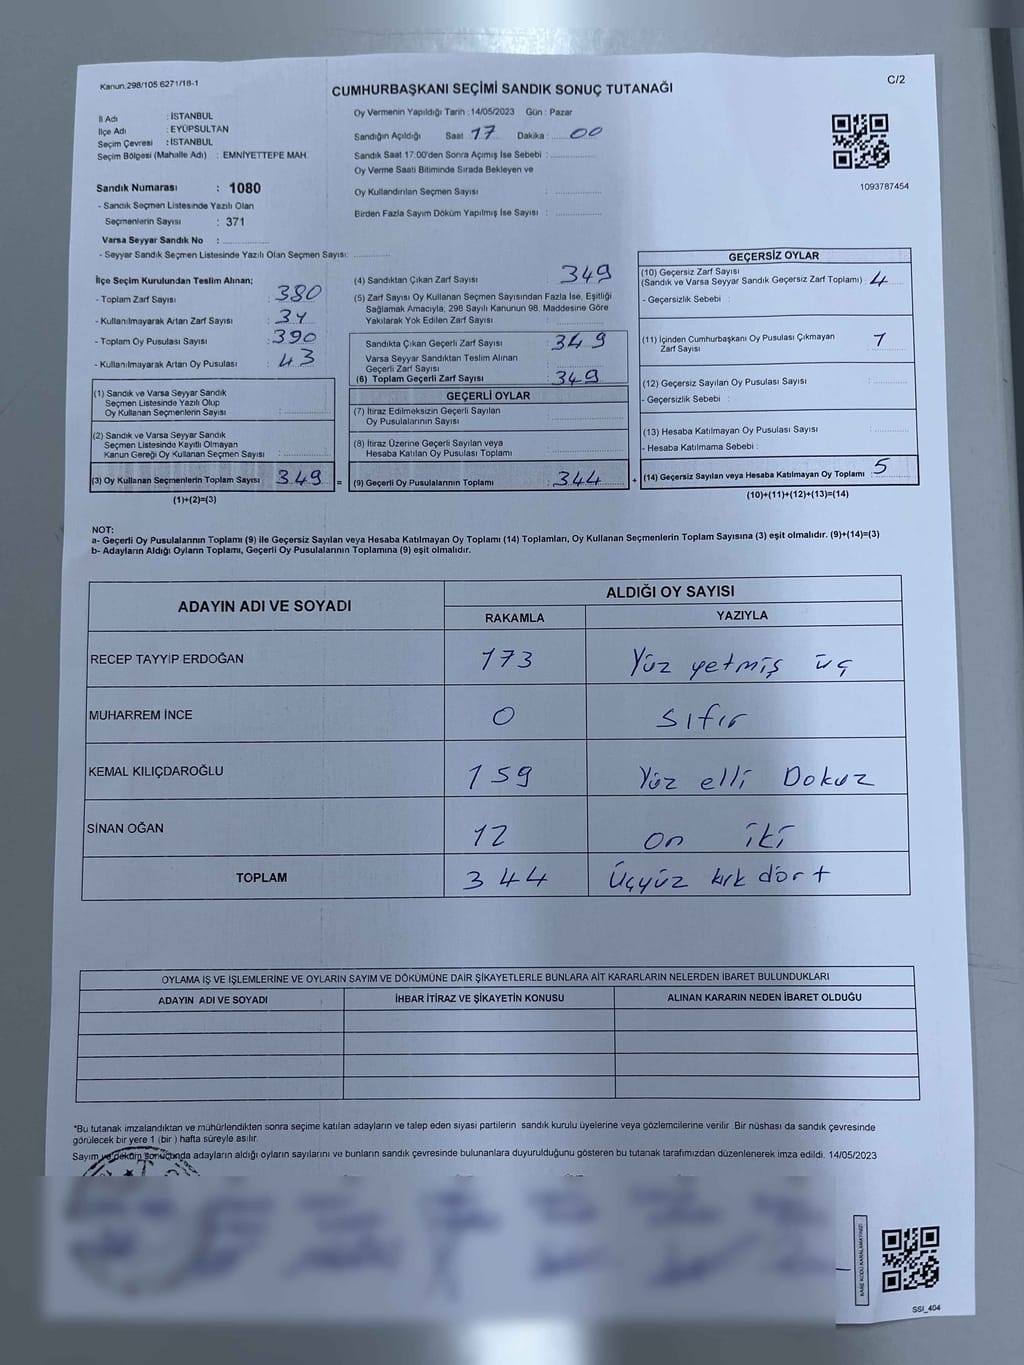 Kanun:298/105 6271/18-1
CUMHURBAŞKANI SEÇİMİ SANDIK SONUÇ TUTANAĞI
C/2
İl Adı : İSTANBUL
İlçe Adı : EYÜPSULTAN
Seçim Çevresi : İSTANBUL
Seçim Bölgesi (Mahalle Adı) : EMNİYETTEPE MAH.
Oy Vermenin Yapıldığı Tarih : 14/05/2023 Gün : Pazar
Sandığın Açıldığı Saat 17 Dakika : 00
Sandık Saat 17:00'den Sonra Açımış İse Sebebi :
Oy Verme Saati Bitiminde Sırada Bekleyen ve
Oy Kullandırılan Seçmen Sayısı :
Birden Fazla Sayım Döküm Yapılmış İse Sayısı :
1093787454
Sandık Numarası : 1080
- Sandık Seçmen Listesinde Yazılı Olan
Seçmenlerin Sayısı : 371
Varsa Seyyar Sandık No :
- Seyyar Sandık Seçmen Listesinde Yazılı Olan Seçmen Sayısı:
İlçe Seçim Kurulundan Teslim Alınan;
- Toplam Zarf Sayısı : 380
- Kullanılmayarak Artan Zarf Sayısı : 34
- Toplam Oy Pusulası Sayısı : 390
- Kullanılmayarak Artan Oy Pusulası : 43
(1) Sandık ve Varsa Seyyar Sandık
Seçmen Listesinde Yazılı Olup
Oy Kullanan Seçmenlerin Sayısı :
(2) Sandık ve Varsa Seyyar Sandık
Seçmen Listesinde Kayıtlı Olmayan
Kanun Gereği Oy Kullanan Seçmen Sayısı :
(3) Oy Kullanan Seçmenlerin Toplam Sayısı 349 =
(1)+(2)=(3)
(4) Sandıktan Çıkan Zarf Sayısı : 349
(5) Zarf Sayısı Oy Kullanan Seçmen Sayısından Fazla İse, Eşitliği
Sağlamak Amacıyla; 298 Sayılı Kanunun 98. Maddesine Göre
Yakılarak Yok Edilen Zarf Sayısı :
Sandıkta Çıkan Geçerli Zarf Sayısı : 349
Varsa Seyyar Sandıktan Teslim Alınan
Geçerli Zarf Sayısı :
(6) Toplam Geçerli Zarf Sayısı : 349
GEÇERLİ OYLAR
(7) İtiraz Edilmeksizin Geçerli Sayılan
Oy Pusulalarının Sayısı :
(8) İtiraz Üzerine Geçerli Sayılan veya
Hesaba Katılan Oy Pusulası Toplamı :
(9) Geçerli Oy Pusulalarının Toplamı : 344 +
GEÇERSİZ OYLAR
(10) Geçersiz Zarf Sayısı
(Sandık ve Varsa Seyyar Sandık Geçersiz Zarf Toplamı) : 4
- Geçersizlik Sebebi :
(11) İçinden Cumhurbaşkanı Oy Pusulası Çıkmayan
Zarf Sayısı : 1
(12) Geçersiz Sayılan Oy Pusulası Sayısı :
- Geçersizlik Sebebi :
(13) Hesaba Katılmayan Oy Pusulası Sayısı :
- Hesaba Katılmama Sebebi :
(14) Geçersiz Sayılan veya Hesaba Katılmayan Oy Toplamı : 5
(10)+(11)+(12)+(13)=(14)
NOT:
a- Geçerli Oy Pusulalarının Toplamı (9) ile Geçersiz Sayılan veya Hesaba Katılmayan Oy Toplamı (14) Toplamları, Oy Kullanan Seçmenlerin Toplam Sayısına (3) eşit olmalıdır. (9)+(14)=(3)
b- Adayların Aldığı Oyların Toplamı, Geçerli Oy Pusulalarının Toplamına (9) eşit olmalıdır.
ADAYIN ADI VE SOYADI
ALDIĞI OY SAYISI
RAKAMLA YAZIYLA
RECEP TAYYİP ERDOĞAN 173 Yüz yetmiş üç
MUHARREM İNCE 0 sıfır
KEMAL KILIÇDAROĞLU 159 Yüz elli Dokuz
SİNAN OĞAN 12 on iki
TOPLAM 344 Üçyüz kırk dört
OYLAMA İŞ VE İŞLEMLERİNE VE OYLARIN SAYIM VE DÖKÜMÜNE DAİR ŞİKAYETLERLE BUNLARA AİT KARARLARIN NELERDEN İBARET BULUNDUKLARI
ADAYIN ADI VE SOYADI İHBAR İTİRAZ VE ŞİKAYETİN KONUSU ALINAN KARARIN NEDEN İBARET OLDUĞU
*Bu tutanak imzalandıktan ve mühürlendikten sonra seçime katılan adayların ve talep eden siyasi partilerin sandık kurulu üyelerine veya gözlemcilerine verilir. Bir nüshası da sandık çevresinde
görülecek bir yere 1 (bir ) hafta süreyle asılır.
Sayım ve döküm sonucunda adayların aldığı oyların sayılarını ve bunların sandık çevresinde bulunanlara duyurulduğunu gösteren bu tutanak tarafımızdan düzenlenerek imza edildi. 14/05/2023
KARE KODU KARALAMAYINIZ!
SSI_404